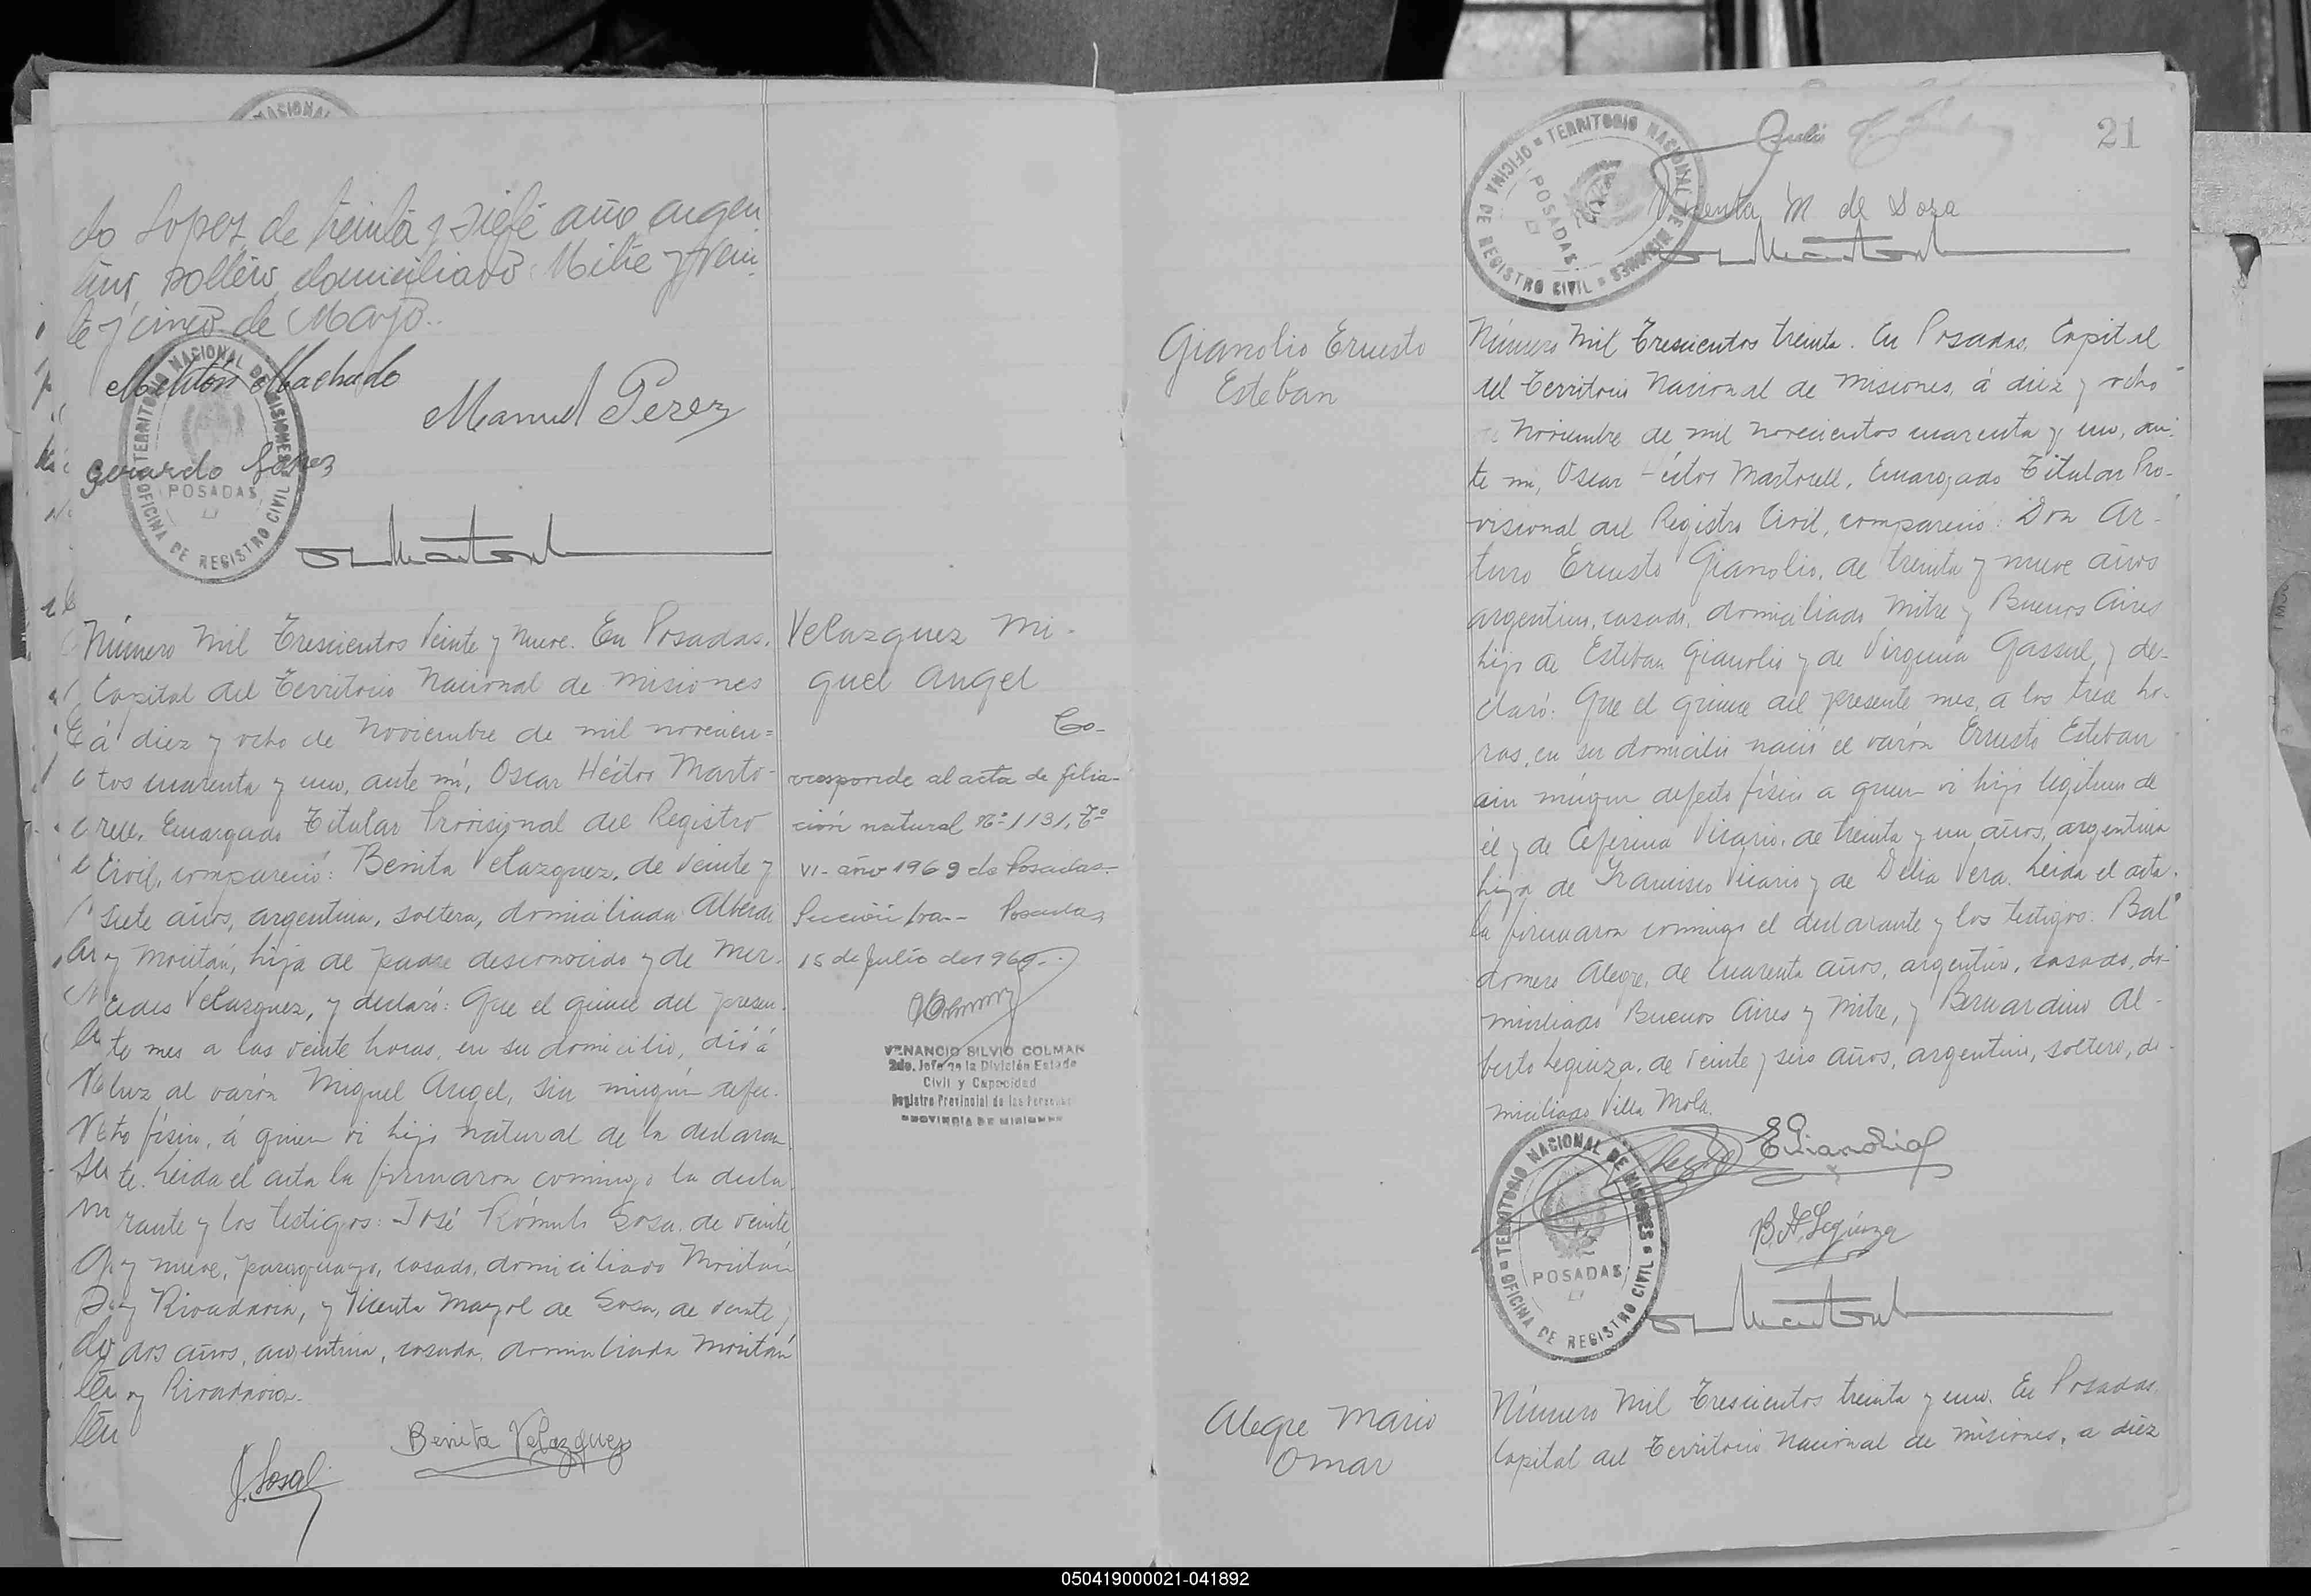 do Lopez de treinta y siete años argen
tino, soltero, domiciliado Mitre y Vein
te y cinco de Mayo..
Melitón Machado
Manuel Perez
Gerardo López
TERRITORIO NACIONAL DE MISIONES
OFICINA DE REGISTRO CIVIL
POSADAS
Número Mil Trescientos Veinte y Nueve. En Posadas,
Capital del Territorio Nacional de Misiones
á diez y ocho de Noviembre de mil novecien=
tos cuarenta y uno, ante mí, Oscar Héctor Marto-
rell, Encargado Titular Provisional del Registro
Civil, compareció: Benita Velazquez, de veinte y
siete años, argentina, soltera, domiciliada Alberdi
y Moritán, hija de padre desconocido y de Mer-
cedes Velazquez, y declaró: Que el quince del presen-
te mes a las veinte horas, en su domicilio, dió á
luz al varón Miguel Angel, sin ningún defec-
to físico, á quien vi hijo natural de la declaran
te. Leida el acta la firmaron conmigo la decla
rante y los testigos: José Rómulo Sosa, de veinte
y nueve, paraguayo, casado, domiciliado Moritán
y Rivadavia, y Vicenta Mayol de Sosa, de veinte y
dos años, argentina, casada, domiciliada Moritán
y Rivadavia.
Benita Velazquez
J. Sosa
Velazquez Mi-
guel Angel
Co-
rresponde al acta de filia-
ción natural Nº 1131, Tº
VI- año 1969 de Posadas.-
Sección 1ra.- Posadas,
15 de Julio de 1969.-
VENANCIO SILVIO COLMAN
2do. Jefe de la División Estado
Civil y Capacidad
Registro Provincial de las Personas
PROVINCIA DE MISIONES
TERRITORIO NACIONAL DE MISIONES
OFICINA DE REGISTRO CIVIL
POSADAS
21
Vicenta M de Sosa
Gianolio Ernesto
Esteban
Número Mil Trescientos treinta. En Posadas, Capital
del Territorio Nacional de Misiones, á diez y ocho
de Noviembre de mil novecientos cuarenta y uno, an-
te mí, Oscar Héctor Martorell, Encargado Titular Pro-
visional del Registro Civil, compareció: Don Ar-
turo Ernesto Gianolio, de treinta y nueve años
argentino, casado, domiciliado Mitre y Buenos Aires
hijo de Esteban Gianolio y de Virginia Gassul, y de-
claró: Que el quince del presente mes, a las trece ho-
ras, en su domicilio nació el varón Ernesto Esteban
sin ningun defecto físico a quien vi hijo legitimo de
él y de Ceferina Vicario, de treinta y un años, argentina
hija de Francisco Vicario y de Delia Vera. Leida el acta
la firmaron conmigo el declarante y los testigos: Bal
domero Alegre, de cuarenta años, argentino, casado, do-
miciliado Buenos Aires y Mitre, y Bernardino Al-
berto Leguiza, de veinte y seis años, argentino, soltero, do-
miciliado Villa Mola.
EGianolio
B.A. Leguiza
TERRITORIO NACIONAL DE MISIONES
OFICINA DE REGISTRO CIVIL
POSADAS
Alegre Mario
Omar
Número Mil Trescientos treinta y uno. En Posadas,
Capital del Territorio Nacional de Misiones, a diez
050419000021-041892